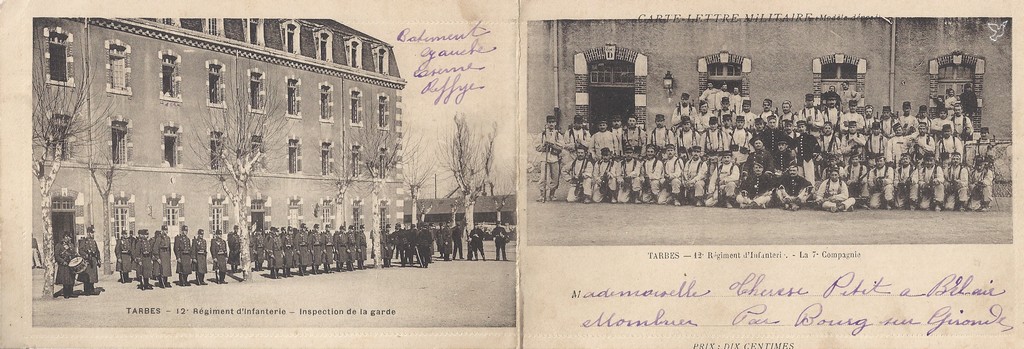 Batiment
gauche
Caserne
Reffye
TARBES – 12e Régiment d'Infanterie – Inspection de la garde
CARTE-LETTRE MILITAIRE (Modèle déposé)
TARBES – 12e Régiment d'Infanterie. - La 7e Compagnie
Mademoiselle Therese Petit a Bélair
Mombrier Par Bourg sur Gironde
PRIX : DIX CENTIMES